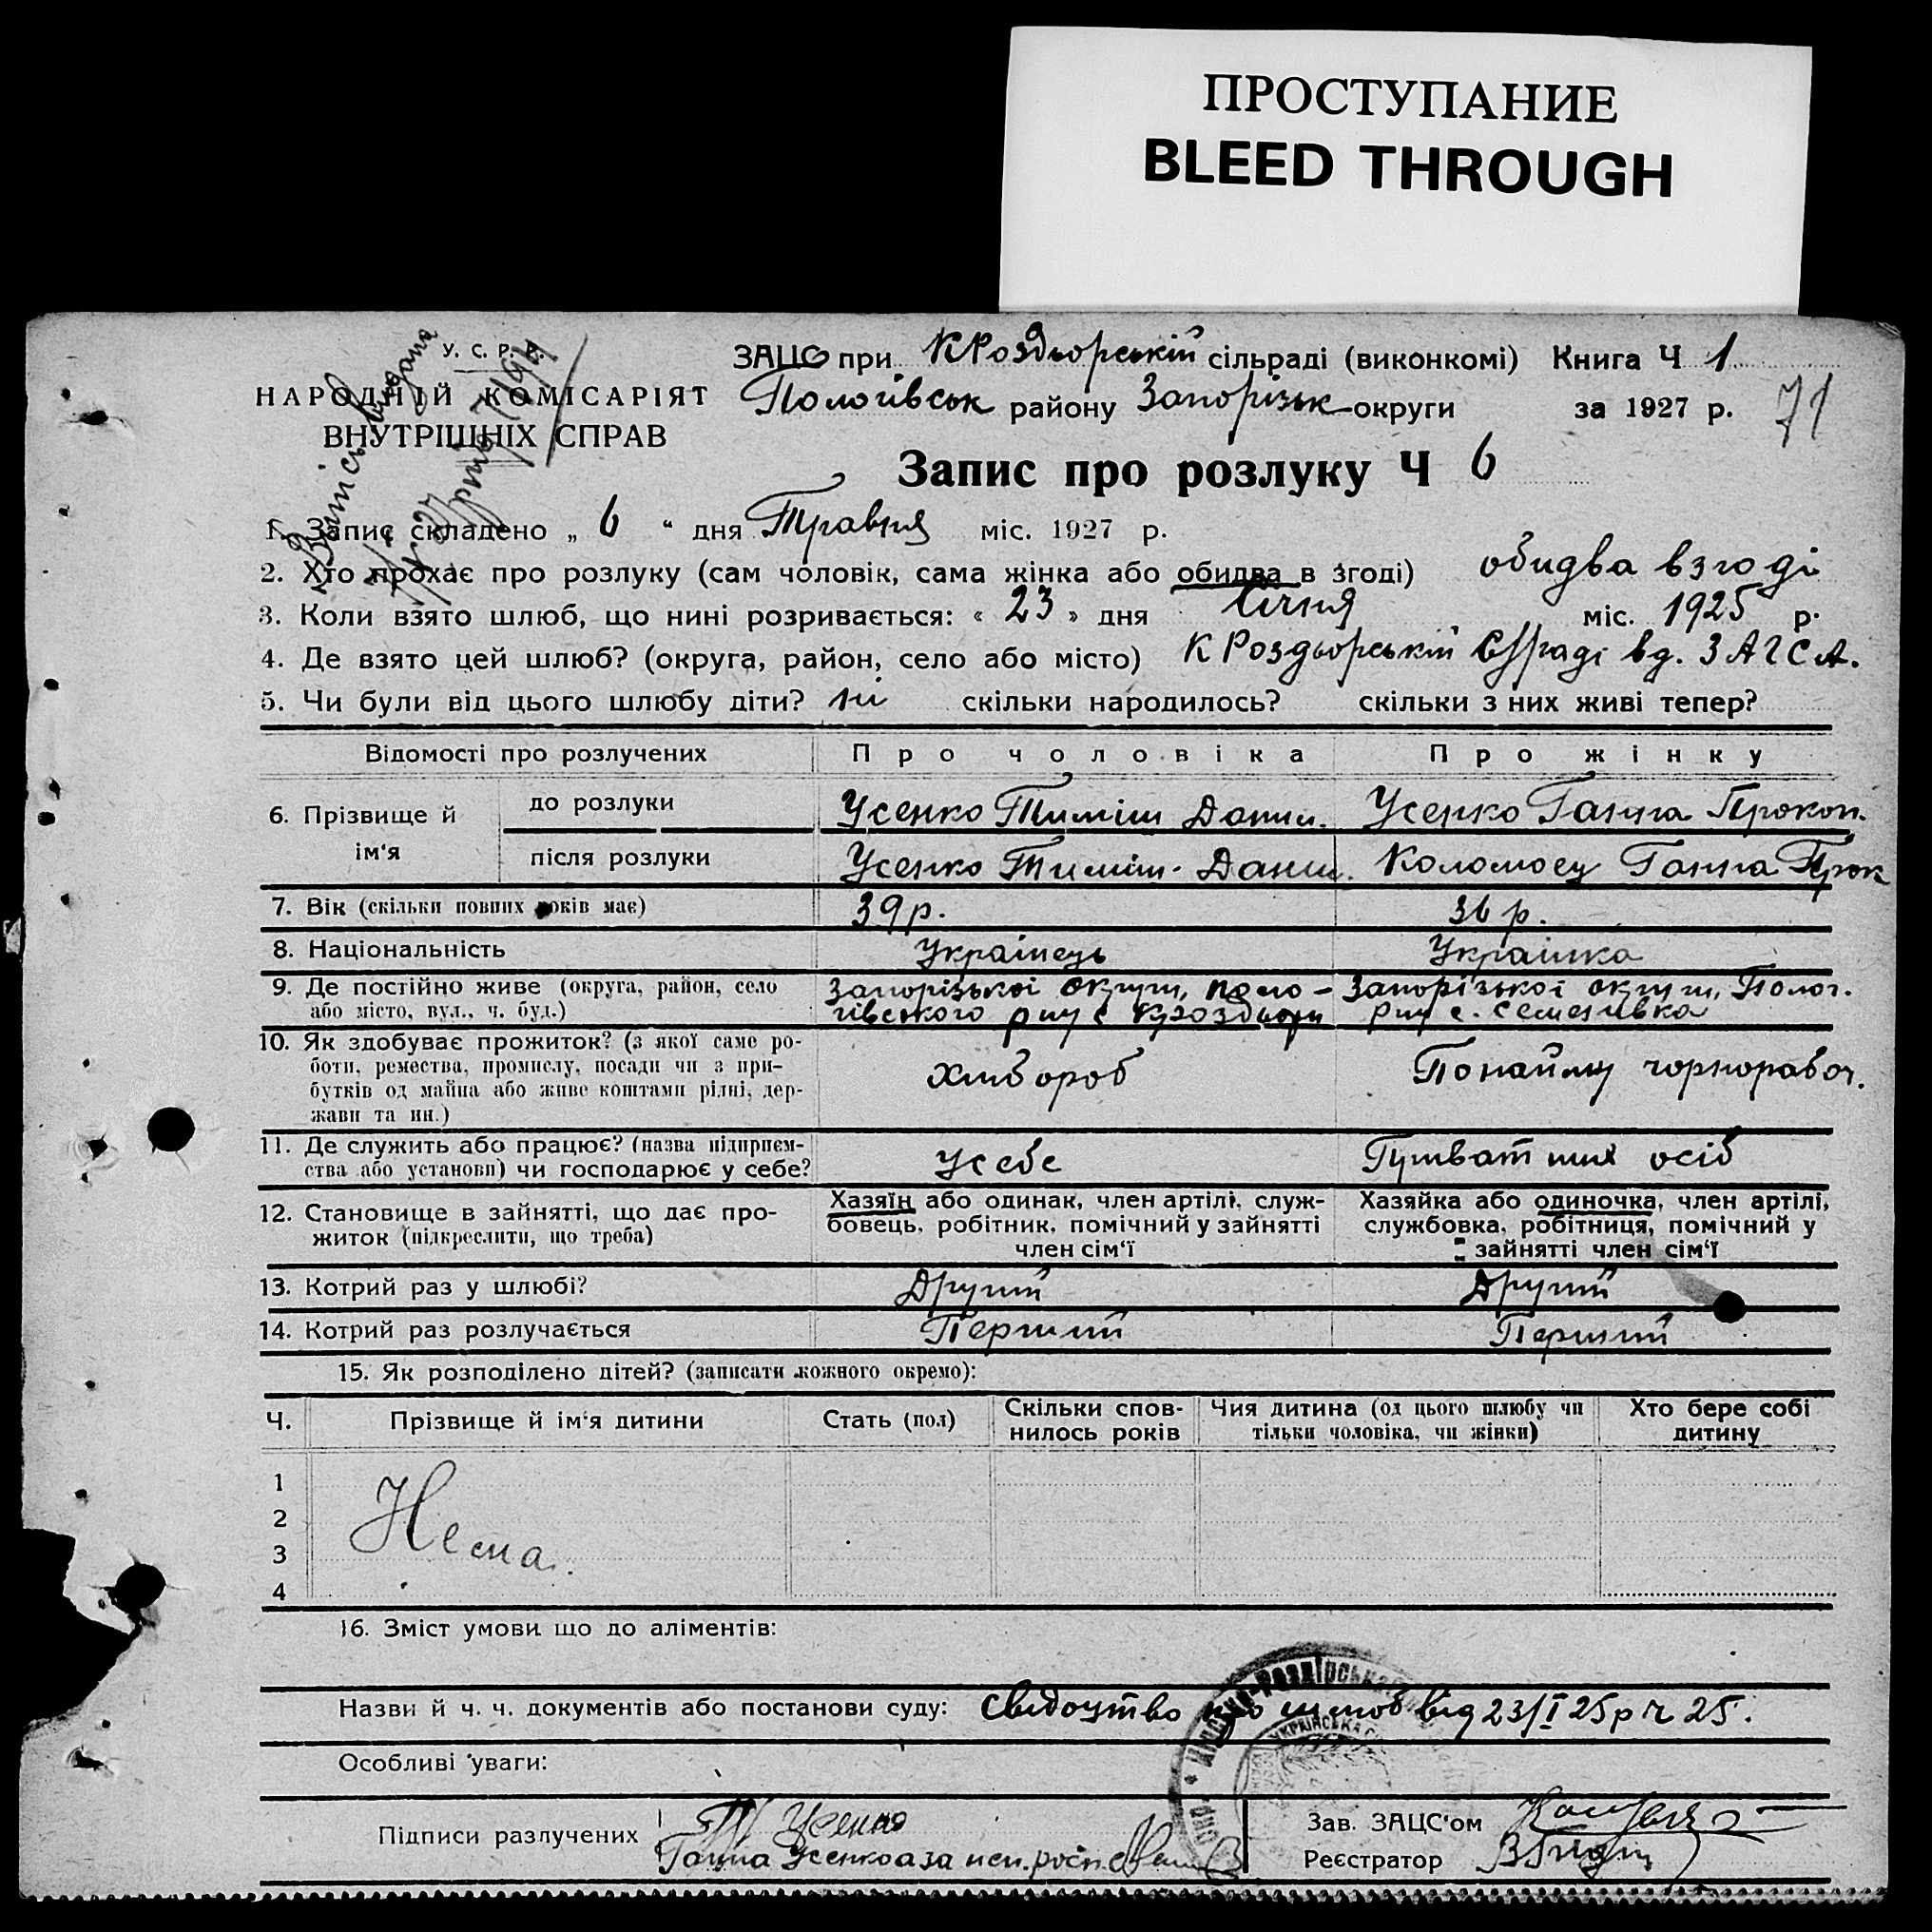 ПРОСТУПАНИЕ
BLEED THROUGH
У. С. Р. Р.
НАРОДНІЙ КОМІСАРІЯТ
ВНУТРІШНІХ СПРАВ
Випись видана
ЗАЦС при КРоздьорській сільраді (виконкомі) Книга Ч 1
Пологівськ району Запорізьк округи за 1927 р. 71
Запис про розлуку Ч 6
1. Запис складено „ 6 “ дня Травня міс. 1927 р.
2. Хто прохає про розлуку (сам чоловік, сама жінка або обидва в згоді) обидва взгоді
3. Коли взято шлюб, що нині розривається: « 23 » дня Січня міс. 1925 р.
4. Де взято цей шлюб? (округа, район, село або місто) К Роздьорській С/раді вд. ЗАГСА.
5. Чи були від цього шлюбу діти? ні скільки народилось? скільки з них живі тепер?
Відомості про розлучених Про чоловіка Про жінку
6. Прізвище й ім‘я
до розлуки Усенко Тиміш Данил. Усенко Ганна Прокоп.
після розлуки Усенко Тиміш Данил. Коломоец Ганна Прок
7. Вік (скільки повних років має) 39 р. 36 р.
8. Національність Українець Українка
9. Де постійно живе (округа, район, село Запорізької округи, поло- Запорізької округи, Полог.
або місто, вул., ч. буд.) гівського р-ну с КРоздьори р-ну с. Семенівка
10. Як здобуває прожиток? (з якої саме ро-
боти, ремества, промислу, посади чи з при-
бутків од майна або живе коштами рідні, дер-
жави та ин.)
хлибороб Понайму чорнорабоч.
11. Де служить або працює? (назва підприєм-
ства або установи) чи господарює у себе?
Усебе Припатних осіб
12. Становище в зайнятті, що дає про-
житок (підкреслити, що треба)
Хазяїн або одинак, член артілі, служ-
бовець, робітник, помічний у зайнятті
член сім‘ї
Хазяйка або одиночка, член артілі,
службовка, робітниця, помічний у
зайнятті член сім‘ї
13. Котрий раз у шлюбі? Другий Другий
14. Котрий раз розлучається Перший Перший
15. Як розподілено дітей? (записати кожного окремо):
Ч. Прізвище й ім‘я дитини Стать (пол) Скільки спов-
нилось років Чия дитина (од цього шлюбу чи
тільки чоловіка, чи жінки) Хто бере собі
дитину
1
2
3
4
Нема.
16. Зміст умови що до аліментів:
Назви й ч. ч. документів або постанови суду: Свидоцтво про шлюб від 23/I 25 р ч 25.
Особливі уваги:
Підписи разлучених Т Усенко
Ганна Усенко
Зав. ЗАЦС‘ом
Реєстратор